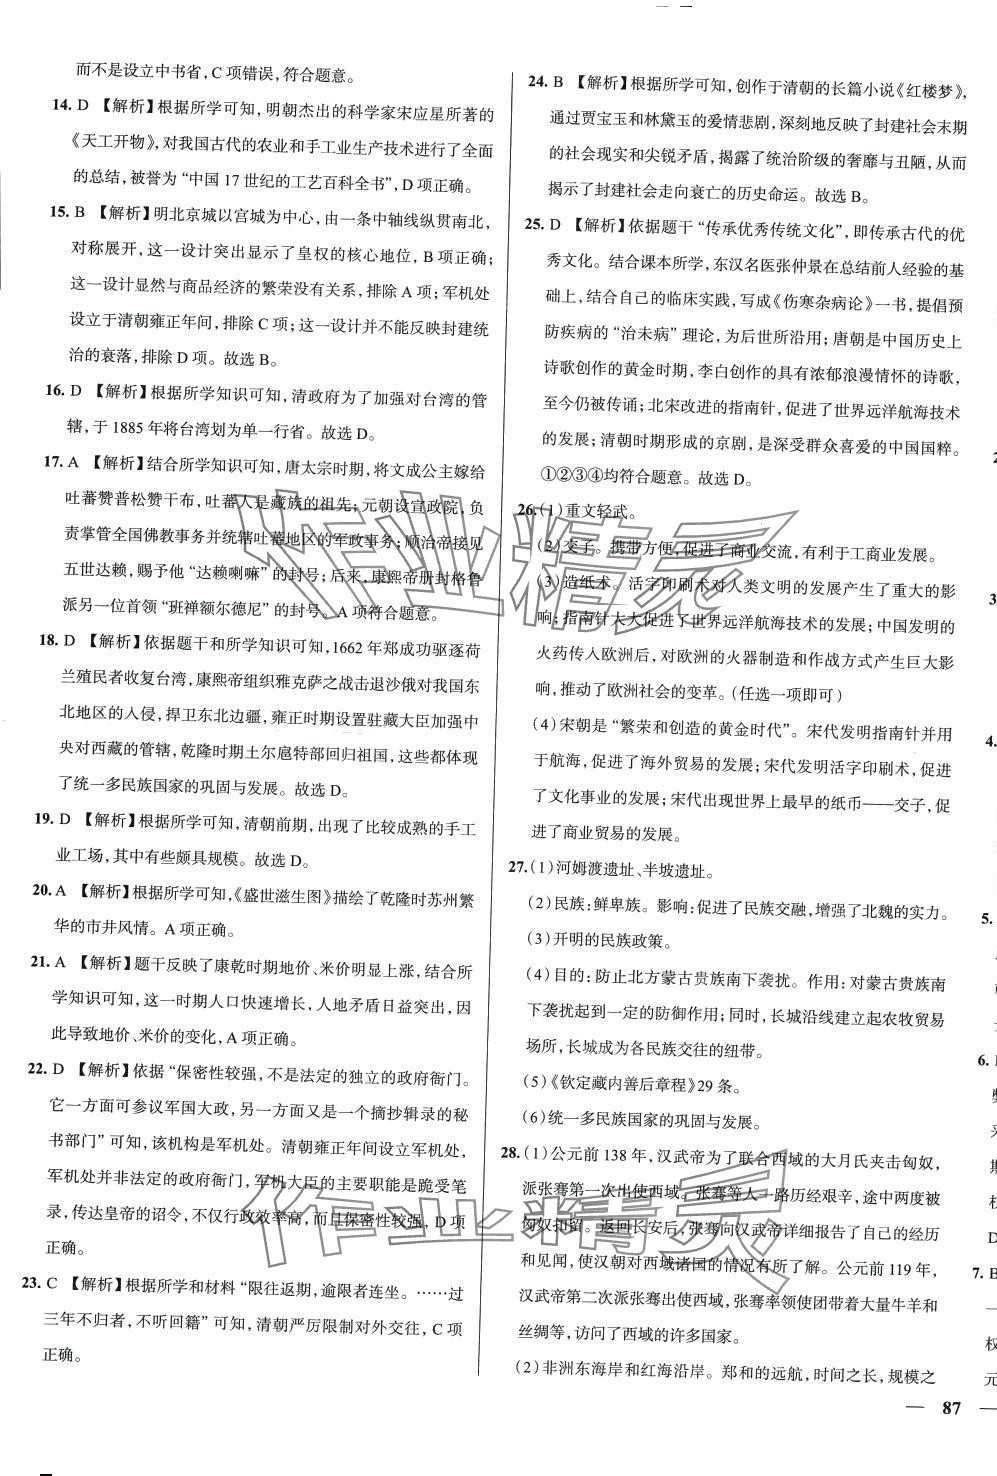 而不是设立中书省，C 项错误，符合题意。
14. D 【解析】根据所学可知，明朝杰出的科学家宋应星所著的
《天工开物》，对我国古代的农业和手工业生产技术进行了全面
的总结，被誉为“中国 17 世纪的工艺百科全书”，D 项正确。
15. B 【解析】明北京城以宫城为中心，由一条中轴线纵贯南北，
对称展开，这一设计突出显示了皇权的核心地位，B 项正确；
这一设计显然与商品经济的繁荣没有关系，排除 A 项；军机处
设立于清朝雍正年间，排除 C 项；这一设计并不能反映封建统
治的衰落，排除 D 项。故选 B。
16. D 【解析】根据所学知识可知，清政府为了加强对台湾的管
辖，于 1885 年将台湾划为单一行省。故选 D。
17. A 【解析】结合所学知识可知，唐太宗时期，将文成公主嫁给
吐蕃赞普松赞干布，吐蕃人是藏族的祖先；元朝设宣政院，负
责掌管全国佛教事务并统辖吐蕃地区的军政事务；顺治帝接见
五世达赖，赐予他“达赖喇嘛”的封号；后来，康熙帝册封格鲁
派另一位首领“班禅额尔德尼”的封号。A 项符合题意。
18. D 【解析】依据题干和所学知识可知，1662 年郑成功驱逐荷
兰殖民者收复台湾，康熙帝组织雅克萨之战击退沙俄对我国东
北地区的入侵，捍卫东北边疆，雍正时期设置驻藏大臣加强中
央对西藏的管辖，乾隆时期土尔扈特部回归祖国，这些都体现
了统一多民族国家的巩固与发展。故选 D。
19. D 【解析】根据所学可知，清朝前期，出现了比较成熟的手工
业工场，其中有些颇具规模。故选 D。
20. A 【解析】根据所学可知，《盛世滋生图》描绘了乾隆时苏州繁
华的市井风情。A 项正确。
21. A 【解析】题干反映了康乾时期地价、米价明显上涨，结合所
学知识可知，这一时期人口快速增长，人地矛盾日益突出，因
此导致地价、米价的变化，A 项正确。
22. D 【解析】依据“保密性较强，不是法定的独立的政府衙门。
它一方面可参议军国大政，另一方面又是一个摘抄辑录的秘
书部门”可知，该机构是军机处。清朝雍正年间设立军机处，
军机处并非法定的政府衙门，军机大臣的主要职能是跪受笔
录，传达皇帝的诏令，不仅行政效率高，而且保密性较强，D 项
正确。
23. C 【解析】根据所学和材料“限往返期，逾限者连坐。……过
三年不归者，不听回籍”可知，清朝严厉限制对外交往，C 项
正确。
24. B 【解析】根据所学可知，创作于清朝的长篇小说《红楼梦》，
通过贾宝玉和林黛玉的爱情悲剧，深刻地反映了封建社会末期
的社会现实和尖锐矛盾，揭露了统治阶级的奢靡与丑陋，从而
揭示了封建社会走向衰亡的历史命运。故选 B。
25. D 【解析】依据题干“传承优秀传统文化”，即传承古代的优
秀文化。结合课本所学，东汉名医张仲景在总结前人经验的基
础上，结合自己的临床实践，写成《伤寒杂病论》一书，提倡预
防疾病的“治未病”理论，为后世所沿用；唐朝是中国历史上
诗歌创作的黄金时期，李白创作的具有浓郁浪漫情怀的诗歌，
至今仍被传诵；北宋改进的指南针，促进了世界远洋航海技术
的发展；清朝时期形成的京剧，是深受群众喜爱的中国国粹。
①②③④均符合题意。故选 D。
26. (1)重文轻武。
(2)交子。携带方便，促进了商业交流，有利于工商业发展。
(3)造纸术。活字印刷术对人类文明的发展产生了重大的影
响；指南针大大促进了世界远洋航海技术的发展；中国发明的
火药传入欧洲后，对欧洲的火器制造和作战方式产生巨大影
响，推动了欧洲社会的变革。（任选一项即可）
(4)宋朝是“繁荣和创造的黄金时代”。宋代发明指南针并用
于航海，促进了海外贸易的发展；宋代发明活字印刷术，促进
了文化事业的发展；宋代出现世界上最早的纸币——交子，促
进了商业贸易的发展。
27. (1)河姆渡遗址、半坡遗址。
(2)民族：鲜卑族。影响：促进了民族交融，增强了北魏的实力。
(3)开明的民族政策。
(4)目的：防止北方蒙古贵族南下袭扰。作用：对蒙古贵族南
下袭扰起到一定的防御作用；同时，长城沿线建立起农牧贸易
场所，长城成为各民族交往的纽带。
(5)《钦定藏内善后章程》29 条。
(6)统一多民族国家的巩固与发展。
28. (1)公元前 138 年，汉武帝为了联合西域的大月氏夹击匈奴，
派张骞第一次出使西域。张骞等人一路历经艰辛，途中两度被
匈奴扣留。返回长安后，张骞向汉武帝详细报告了自己的经历
和见闻，使汉朝对西域诸国的情况有所了解。公元前 119 年，
汉武帝第二次派张骞出使西域，张骞率领使团带着大量牛羊和
丝绸等，访问了西域的许多国家。
(2)非洲东海岸和红海沿岸。郑和的远航，时间之长，规模之
— 87 —
作业精灵
作业精灵
4.
5.
6.
7. B
权
元